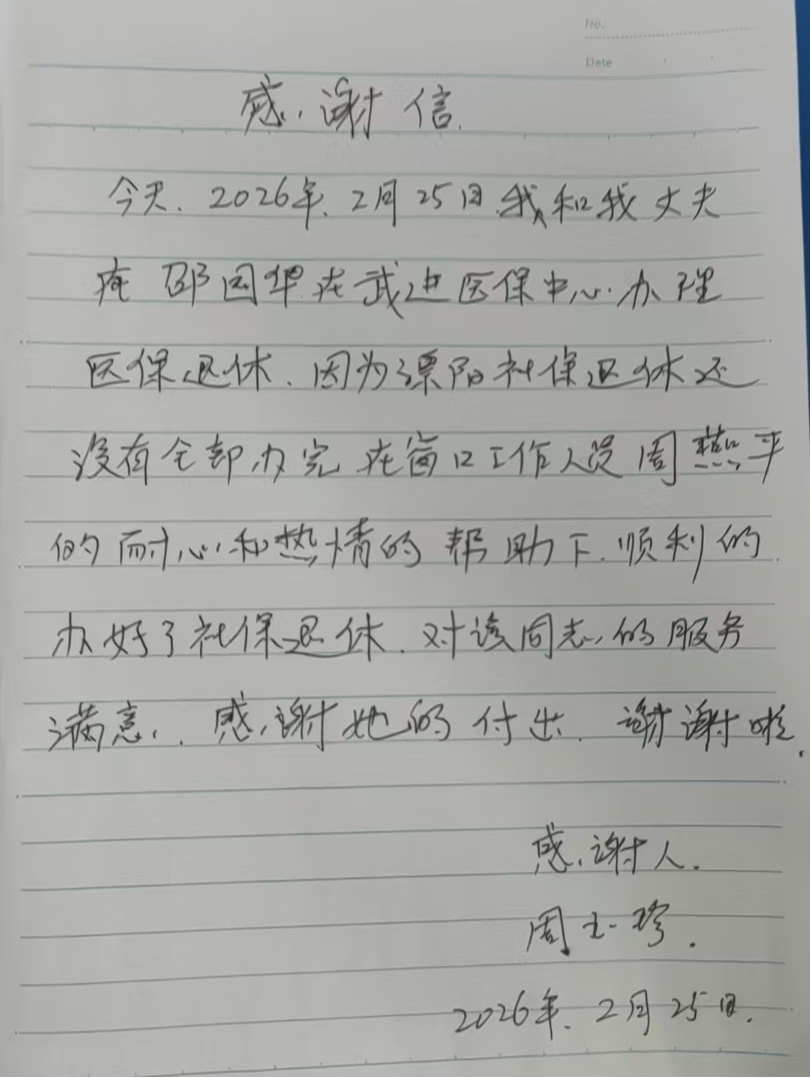 No.
Date
感谢信.
今天.2026年.2月25日.我和我丈夫
邵国华在武进医保中心办理
医保退休.因为溧阳社保退休还
没有全部办完在窗口工作人员周燕平
的耐心和热情的帮助下.顺利的
办好了社保退休.对该同志的服务
满意.感谢她的付出.谢谢啦.
感谢人.
周玉珍.
2026年.2月25日.